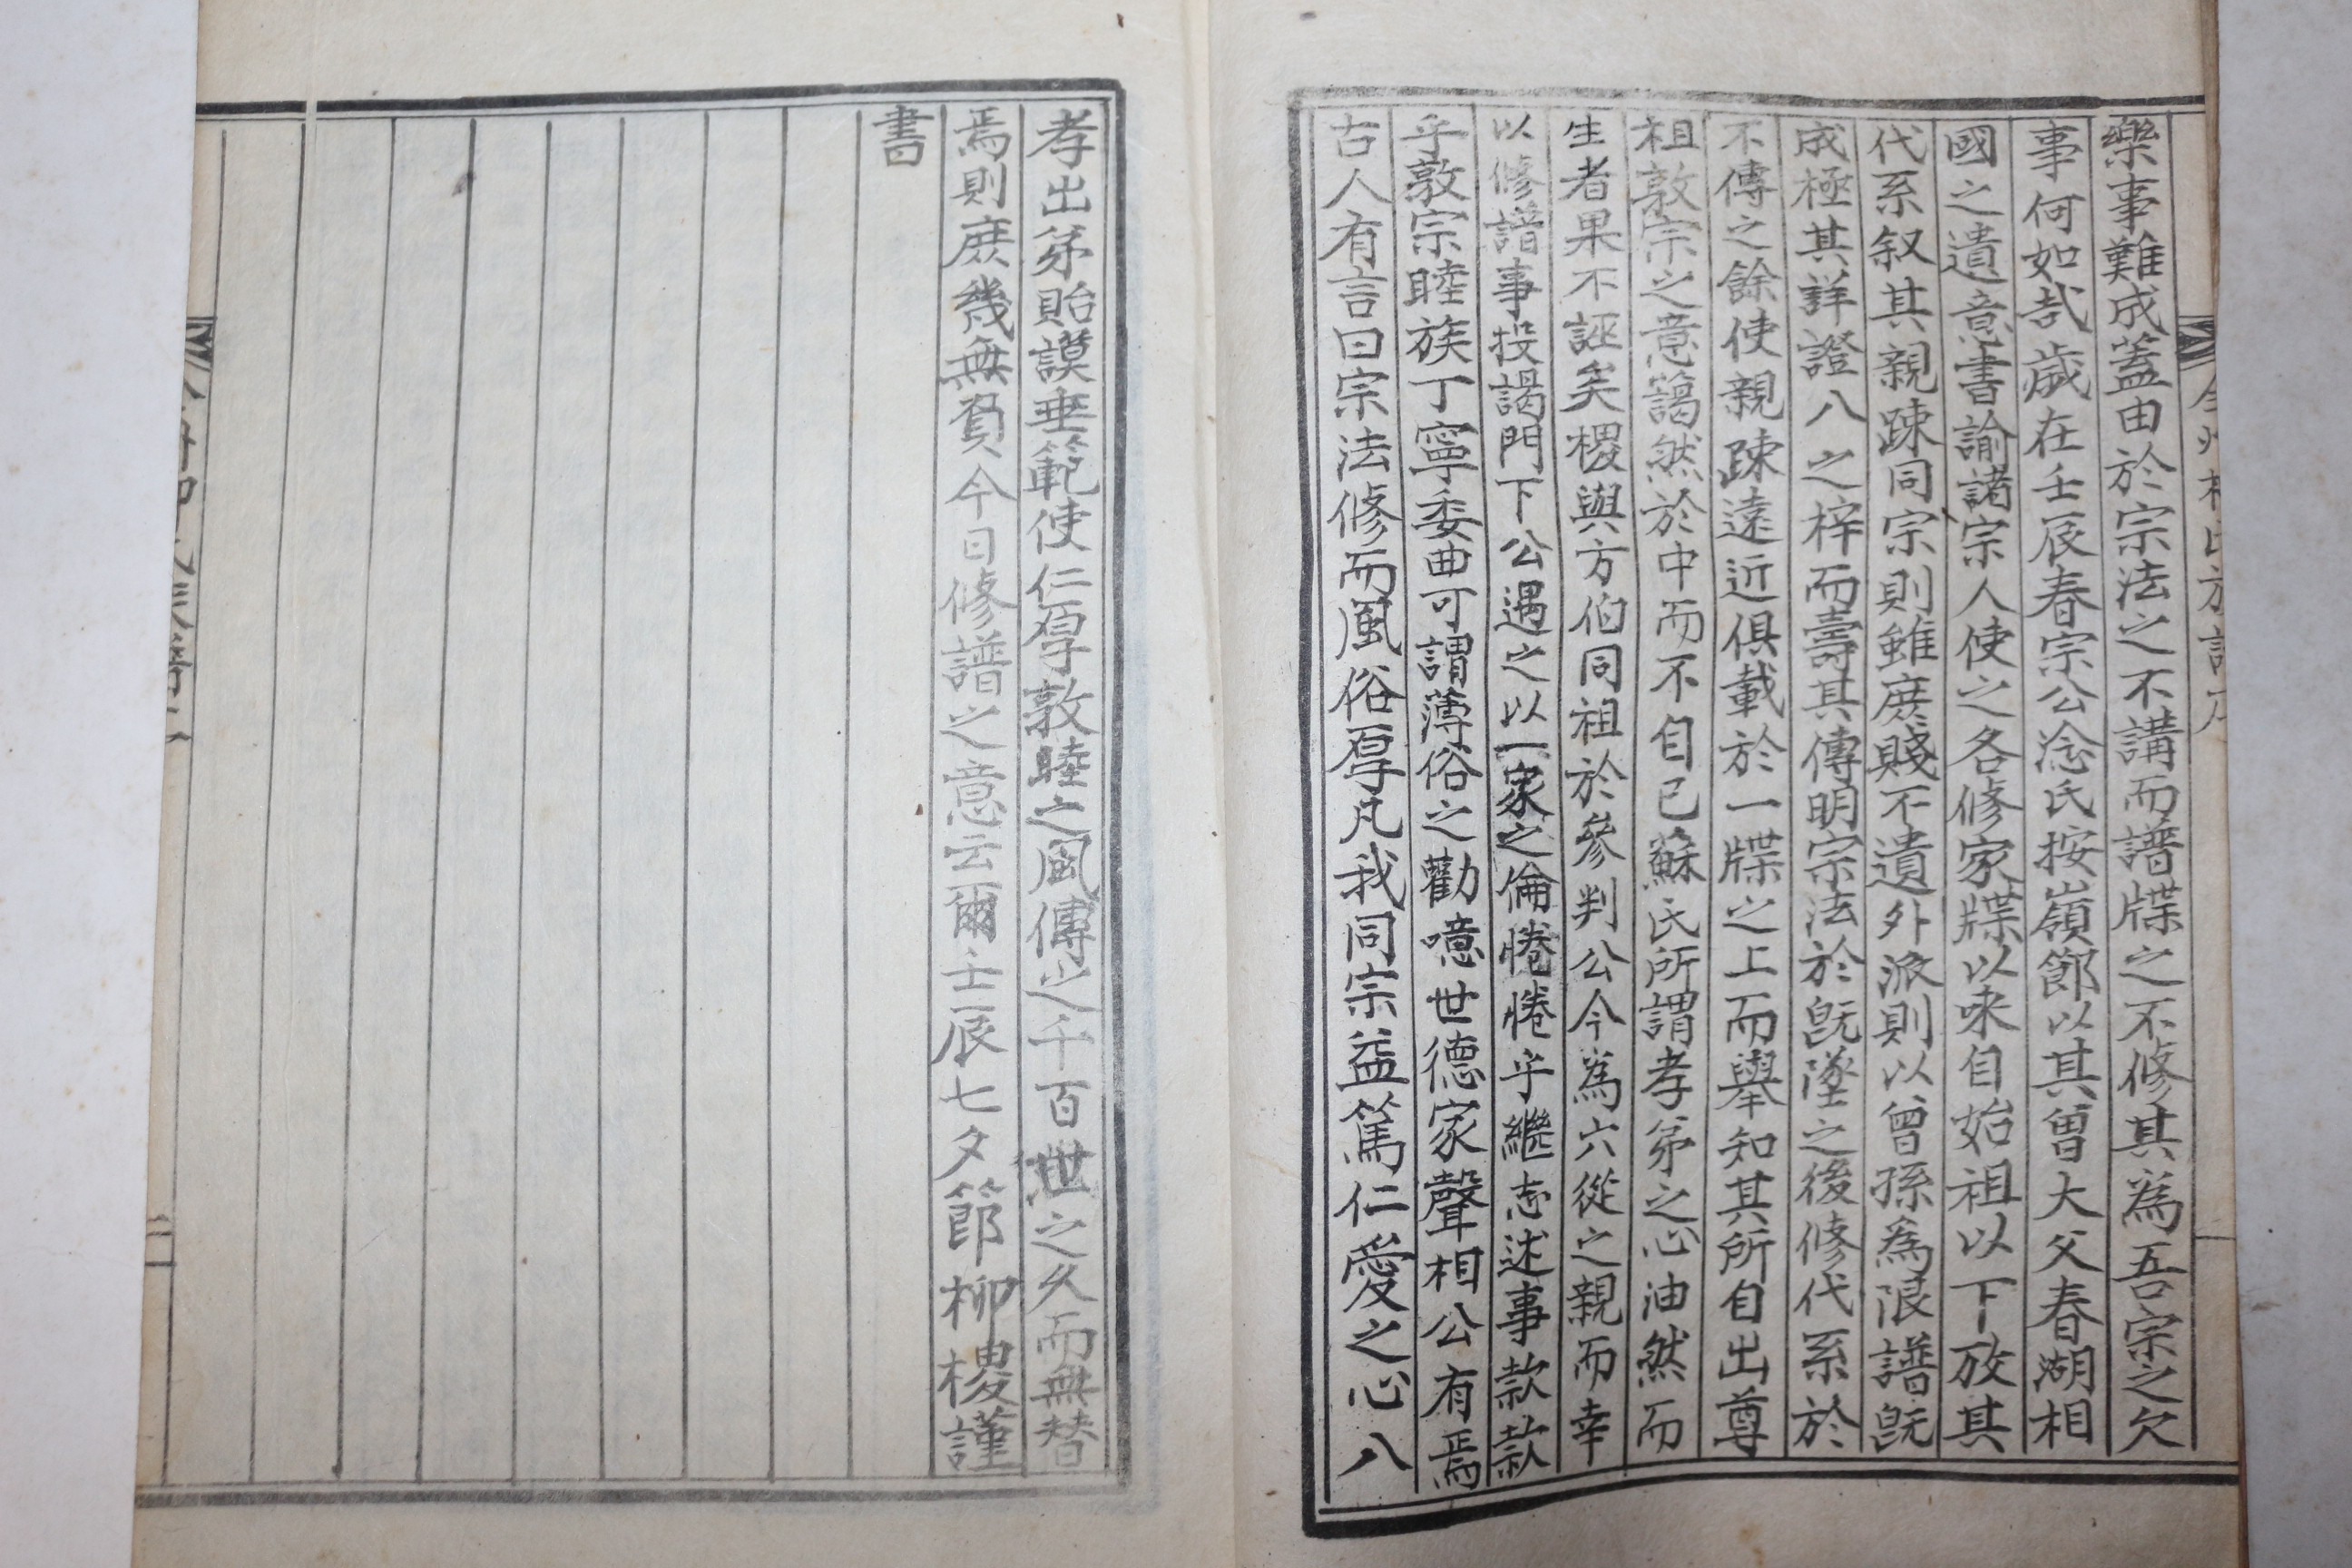 樂事難成蓋由於宗法之不講而譜牒之不修其為吾宗之欠
事何如哉歲在壬辰春宗公淰氏按嶺節以其曾大父春湖相
國之遺意書諭諸宗人使之各修家牒以来自始祖以下放其
代系叙其親踈同宗則雖庶賤不遺外派則以曾孫為限譜旣
成極其詳證八之梓而壽其傳明宗法於旣墜之後修代系於
不傳之餘使親踈遠近俱載於一牒之上而擧知其所自出尊
祖敦宗之意藹然於中而不自已蘇氏所謂孝弟之心油然而
生者果不誣矣㮨與方伯同祖於參判公今為六從之親而幸
以修譜事投謁門下公遇之以一家之倫惓惓乎繼志述事款款
乎敦宗睦族丁寧委曲可謂薄俗之勸噫世德家聲相公有焉
古人有言曰宗法修而風俗厚凡我同宗益篤仁愛之心八
孝出弟貽謨垂範使仁厚敦睦之風傳之千百世之久而無替
焉則庶幾無負今日修譜之意云爾壬辰七夕節柳㮨謹
書